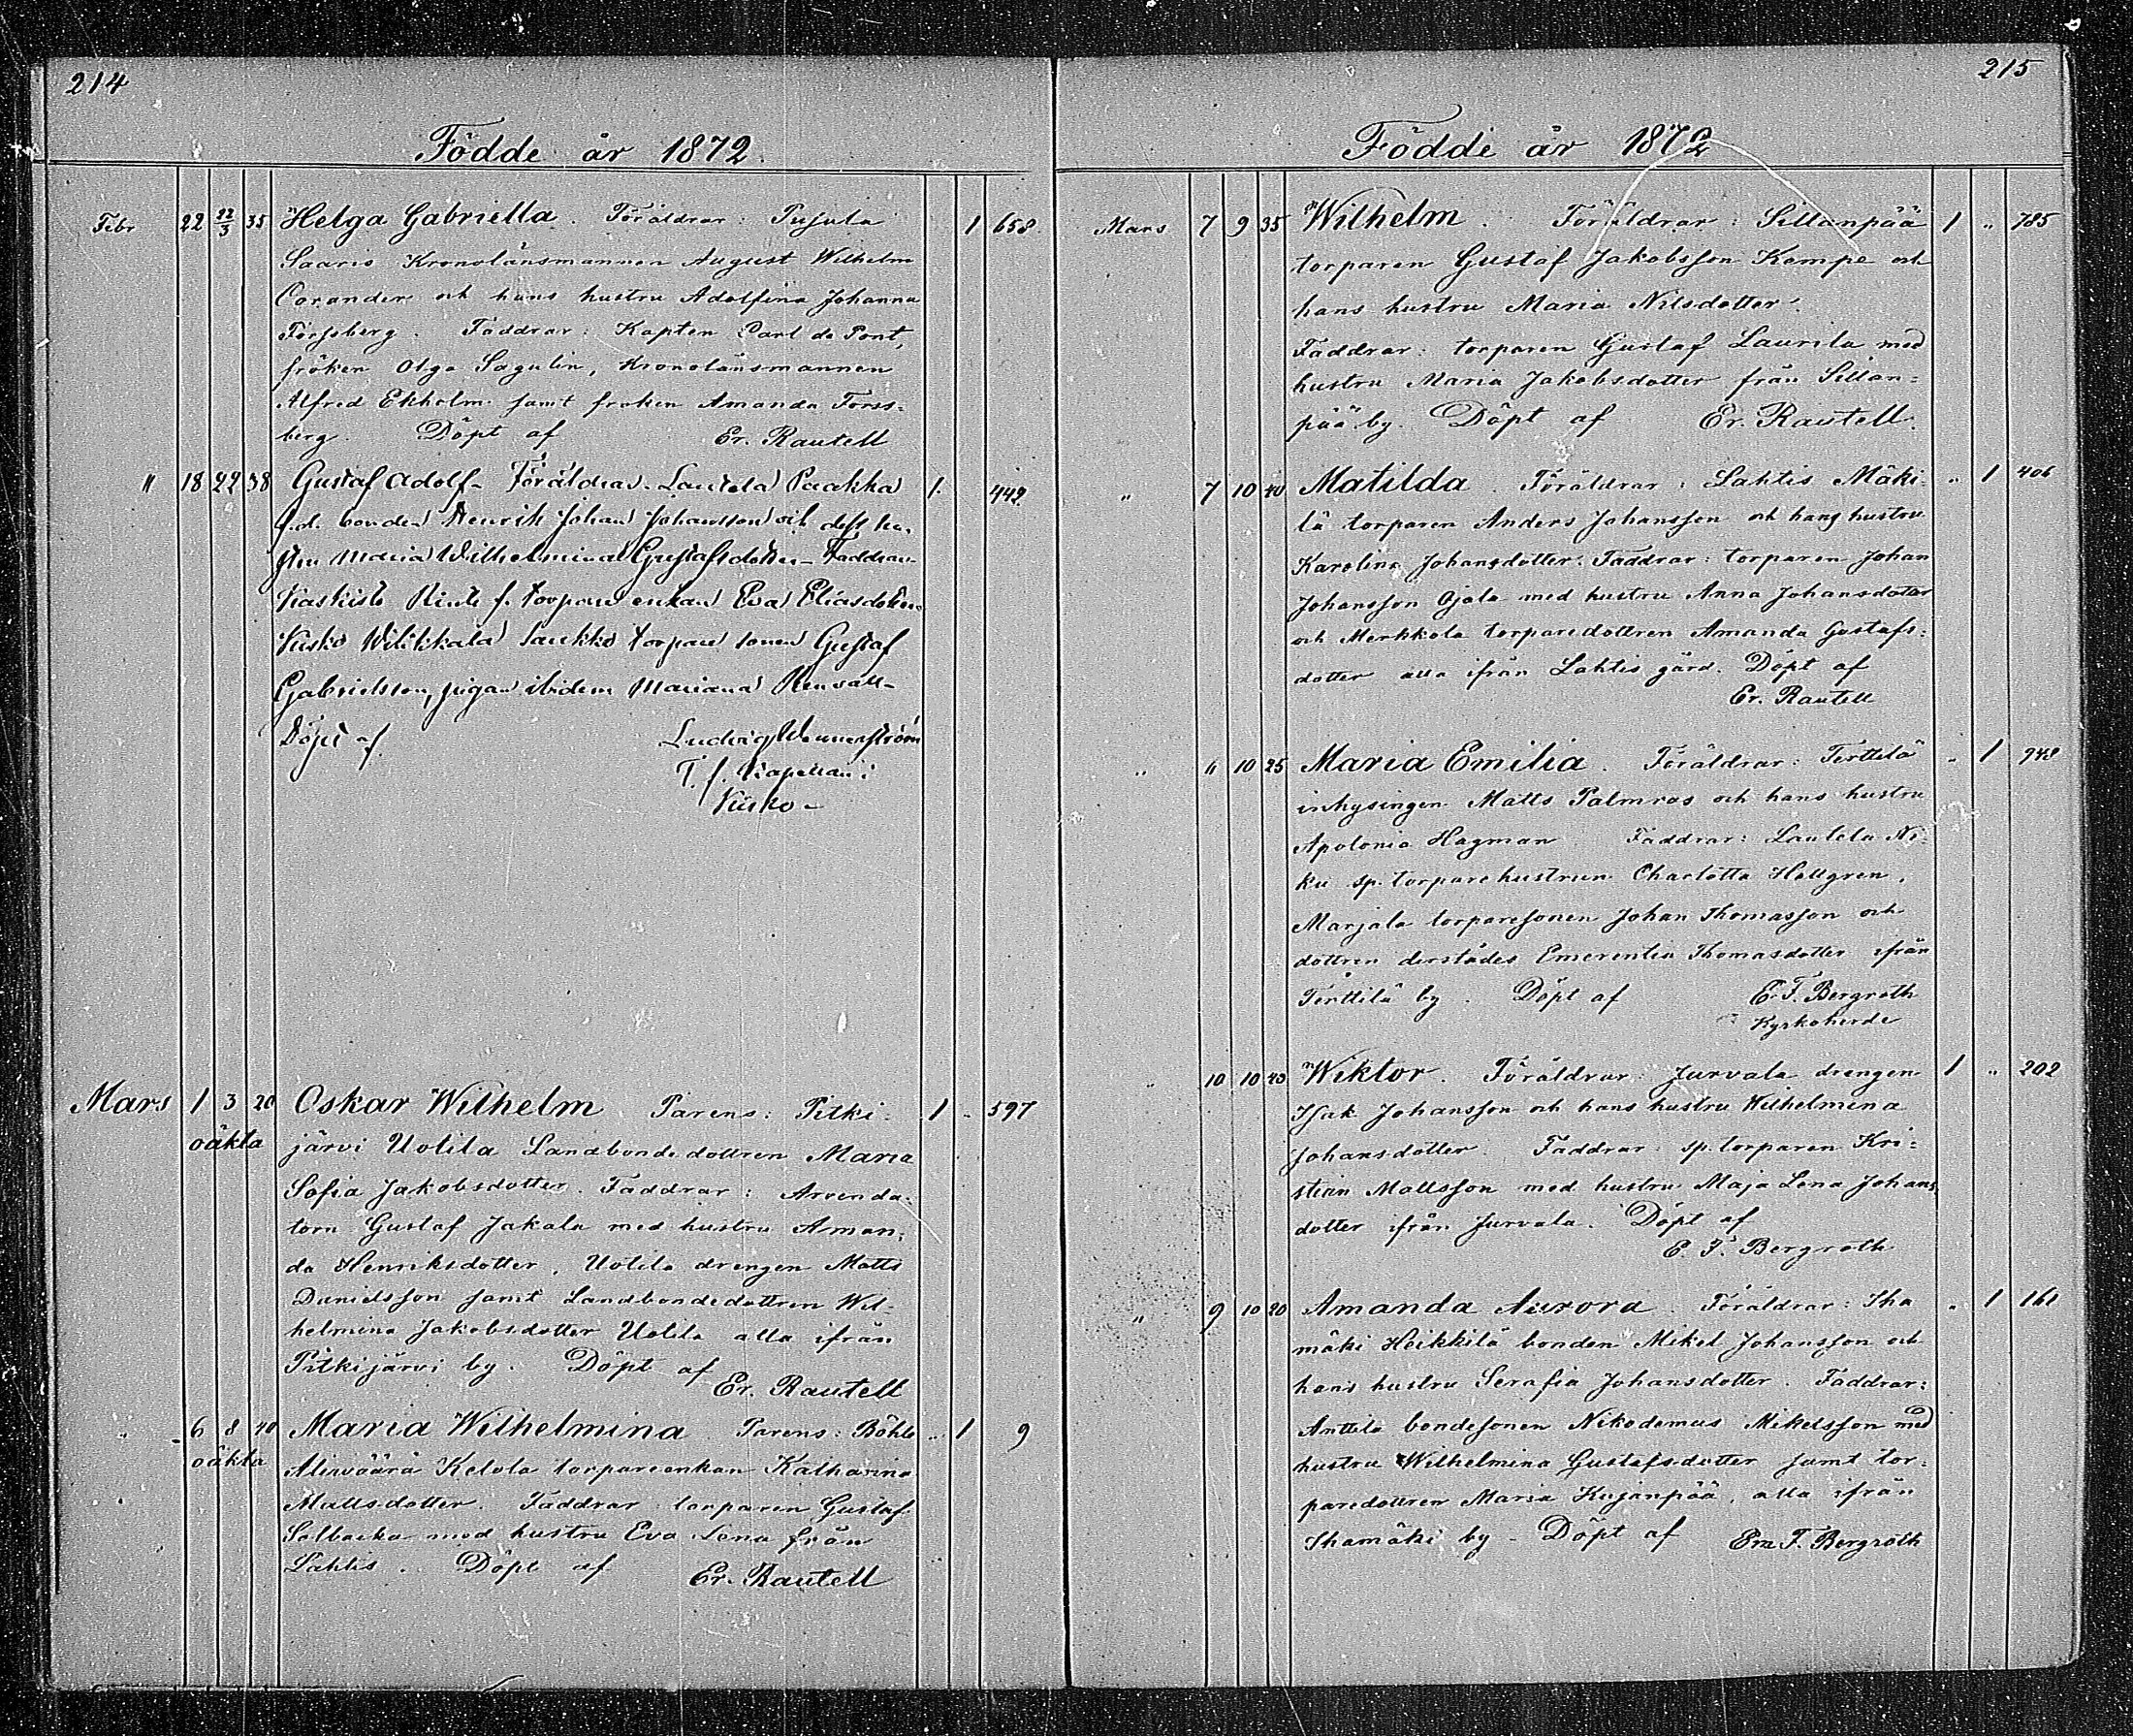 214
Födde år 1872.
Febr 22 22/3 35 Helga Gabriella. Föräldrar: Pujula 1 658.
Saaris Kronolänsmannen August Wilhelm
Corander och hans hustru Adolfina Johanna
Forssberg. Faddrar: Kapten Carl de Pont,
fröken Olga Sagulin, Kronolänsmannen
Alfred Ekholm samt fröken Amanda Forss-
berg. Döpt af Er. Rautell
" 18 22 38 Gustaf Adolf- Föräldrar. Lautela Paakka 1. 442
f.d. bonden Henrik Johan Johansson och dess hu-
stru Maria Wilhelmina Gustafsdotter- Faddrar-
Kaskisto f. torpare enkan Eva Eliasdotter.
Kisko Wilikkala Laukko torpare sonen Gustaf
Gabrielsson, pigan ibidem Mariana Renvall-
Döpt af Ludvig Wennerström
T. f. Kapellan i
Kisko-
Mars 1 3 20 Oskar Wilhelm Parens: Pitki- 1 " 597
oäkta järvi Uotila Landbonde dottren Maria
Sofia Jakobsdotter. Faddrar: Arrenda-
torn Gustaf Jakala med hustru Aman-
da Henriksdotter, Uotila drengen Matts
Danielsson samt Landbondedottren Wil-
helmina Jakobsdotter Uotila alla ifrån
Pitkijärvi by. Döpt af
Er. Rautell
" 6 8 40 Maria Wilhelmina Parens: Böhle " 1 9
oäkta Kelola torpareenkan Katharina
Mattsdotter. Faddrar: torparen Gustaf
Salbacka med hustru Eva Lena från
Lahtis. Döpt af Er. Rautell
215
Födde år 1872
Mars 7 9 35 Wilhelm. Föräldrar: Sillanpää 1 " 785
torparen Gustaf Jakobsson Kempe och
hans hustru Maria Nilsdotter.
Faddrar: torparen Gustaf Laurila med
hustru Maria Jakobsdotter från Sillan-
pää by. Döpt af Er. Rautell.
" 7 10 40 Matilda. Föräldrar: Lahtis Mäki- " 1 406
lä torparen Anders Johansson och hans hustru
Karolina Johansdotter. Faddrar: torparen Johan
Johansson Ojala med hustru Anna Johansdotter
och Merkkola torparedottren Amanda Gustafs-
dotter alla ifrån Lahtis gård. Döpt af
Er. Rautell
" 6 10 25 Maria Emilia. Föräldrar: Terttilä " 1 948
inhysingen Matts Palmros och hans hustru
Apolonia Hagman Faddrar: Lautela Ni-
ku sp. torparehustrun Charlotta Hellgren,
Marjala torparesonen Johan Thomasson och
dottren derstädes Emerentia Thomasdotter ifrån
Terttilä by. Döpt af E. F. Bergroth
Kyrkoherde
10 10 40 Wiktor. Föräldrar: Jurvala drengen 1 " 202
Isak Johansson och hans hustru Wilhelmina
Johansdotter. Faddrar: sp. torparen Kri-
stian Mattsson med hustru Maja Lena Johans
dotter ifrån Jurvala. Döpt af
E. F. Bergroth
" 9 10 20 Amanda Aurora. Föräldrar: Iha " 1 161
mäki Heikkilä bonden Mikel Johansson och
hans hustru Serafia Johansdotter. Faddrar:
Anttila bondesonen Nikodemus Mikelsson med
hustru Wilhelmina Gustafsdotter samt tor-
paredottren Maria Kujanpää, alla ifrån
Ihamäki by - Döpt af Em F. Bergroth